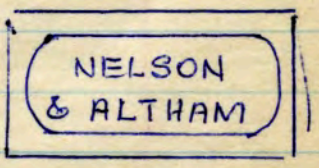 NELSON
& ALTHAM